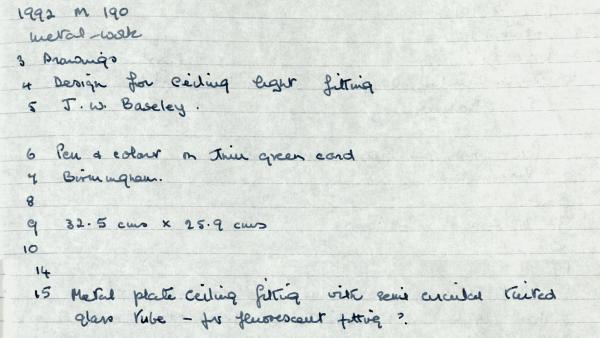 1992 M 190
metal-work
3 Drawings
4 Design for ceiling light fitting
5 J. W. Baseley.
6 Pen & colour on thin green card
7 Birmingham.
8
9 32.5 cms x 25.9 cms
10
14
15 Metal plate ceiling fitting with semi circular tinted
glass tube - for fluorescent fitting ?.